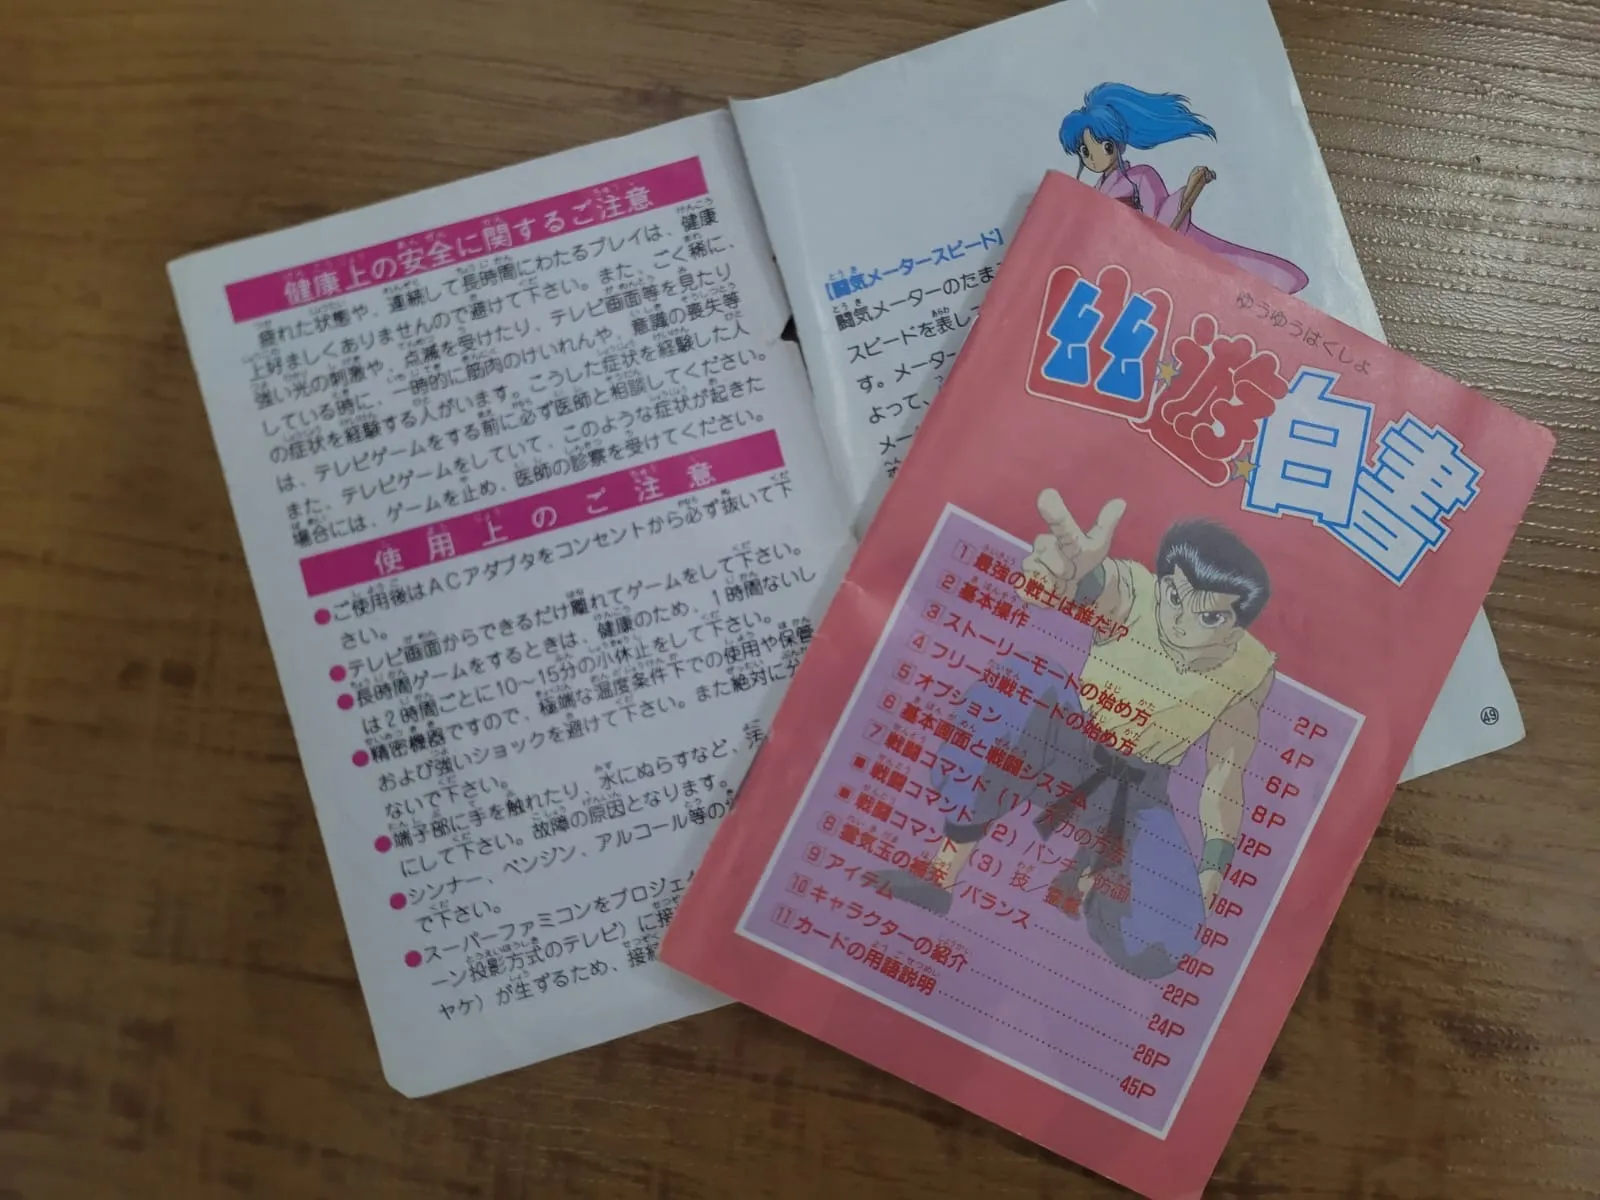 健康上の安全に関するご注意
疲れた状態や、連続して長時間にわたるプレイは、健康
上好ましくありませんので避けて下さい。また、ごく稀に、
強い光の刺激や、点滅を受けたり、テレビ画面等を見たり
している時に、一時的に筋肉のけいれんや、意識の喪失等
の症状を経験する人がいます。こうした症状を経験した人
は、テレビゲームをする前に必ず医師と相談してください。
また、テレビゲームをしていて、このような症状が起きた
場合には、ゲームを止め、医師の診察を受けてください。
使用上のご注意
●ご使用後はACアダプタをコンセントから必ず抜いて下
さい。
●テレビ画面からできるだけ離れてゲームをして下さい。
●長時間ゲームをするときは、健康のため、1時間ないし
は2時間ごとに10～15分の小休止をして下さい。
●精密機器ですので、極端な温度条件下での使用や保管
および強いショックを避けて下さい。また絶対に分
ないで下さい。
●端子部に手を触れたり、水にぬらすなど、汚
にして下さい。故障の原因となります。
●シンナー、ベンジン、アルコール等の
で下さい。
●スーパーファミコンをプロジェ
ーン投影方式のテレビ）に接
ヤケ）が生ずるため、接続
【闘気メータースピード】
闘気メーターのたま
スピードを表し
す。メータ
よって、
メー
㊾
ゆうゆうはくしょ
幽遊白書
1 最強の戦士は誰だ!? 2P
2 基本操作 4P
3 ストーリーモードの始め方 6P
4 フリー対戦モードの始め方 8P
5 オプション 12P
6 基本画面と戦闘システム 14P
7 戦闘コマンド（1）入力の方法 16P
■ 戦闘コマンド（2）パンチ／防御 18P
■ 戦闘コマンド（3）技／霊撃 20P
8 霊気玉の補充／バランス 22P
9 アイテム 24P
10 キャラクターの紹介 26P
11 カードの用語説明 45P